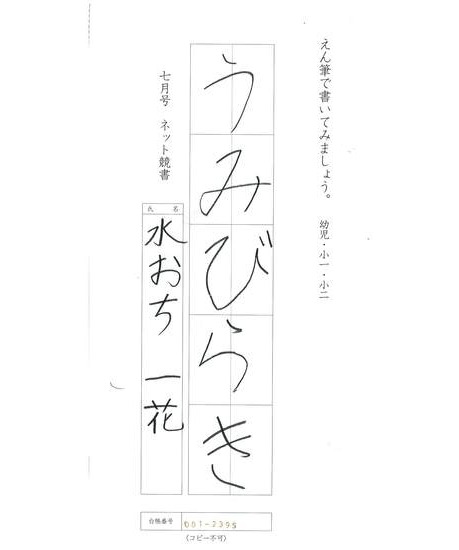 えん筆で書いてみましょう。　幼児・小一・小二
うみびらき
七月号　ネット競書
氏名
水おち　一花
台帳番号 001-2395
(コピー不可)